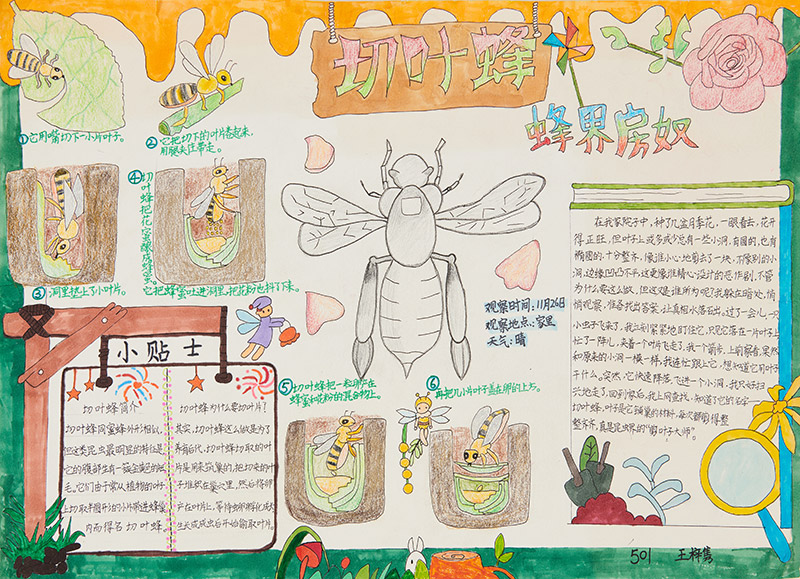 切叶蜂
蜂界房奴
①它用嘴切下一小片叶子。
②它把切下的叶片卷起来,
用腿夹住带走。
③洞里垫上了小叶片。
④切叶蜂把花蜜酿成蜂蜜。
它把蜂蜜吐进洞里,把花粉也抖了下来。
观察时间:11月26日
观察地点:家里
天气:晴
⑤切叶蜂把一粒卵产在
蜂蜜和花粉的混合物上。
⑥再把几小片叶子盖在卵的上方。
小贴士
切叶蜂简介
切叶蜂同蜜蜂外形相似,
但这类昆虫最明显的特征是
它的腹部生有一簇金黄的短
毛。它们由于常从植物的叶子
上切取半圆形的小片带进蜂巢
内而得名切叶蜂。
切叶蜂为什么要切叶片?
其实,切叶蜂这么做是为了
养育后代。切叶蜂切取的叶
片是用来筑巢的,把切来的叶
子堆积在巢穴里,然后将卵
产在叶片上,等待虫卵孵化成幼
虫长成成虫后开始偷取叶片。
在我家院子中,种了几盆月季花,一眼看去,花开
得正旺,但叶子上或多或少总有一些小洞,有圆的,也有
椭圆的,十分整齐,像谁小心地剪去了一块,不像别的小
洞,边缘凹凸不平,这更像谁精心设计的恶作剧,不管
为什么要这么做,但这观是谁所为呢?我躲在暗处,悄
悄观察,准备找出答案,让真相水落石出。过了一会儿,一只
小虫子飞来了,我立刻紧紧地盯住它,只见它落在一片叶子上,
忙了一阵儿,夹着一个叶片飞走了,我一个箭步,上前察看,果然
和原来的小洞一模一样,我连忙跟上它,想知道它用叶子
干什么。突然,它快速降落,飞进一个小洞,我只好扫
兴地走了,回到家后,我上网查找,知道了它的名字——
切叶蜂,叶子是它铺巢的材料,每次都剪得整
整齐齐,真是昆虫界的"剪叶子大师"。
501 王梓隽